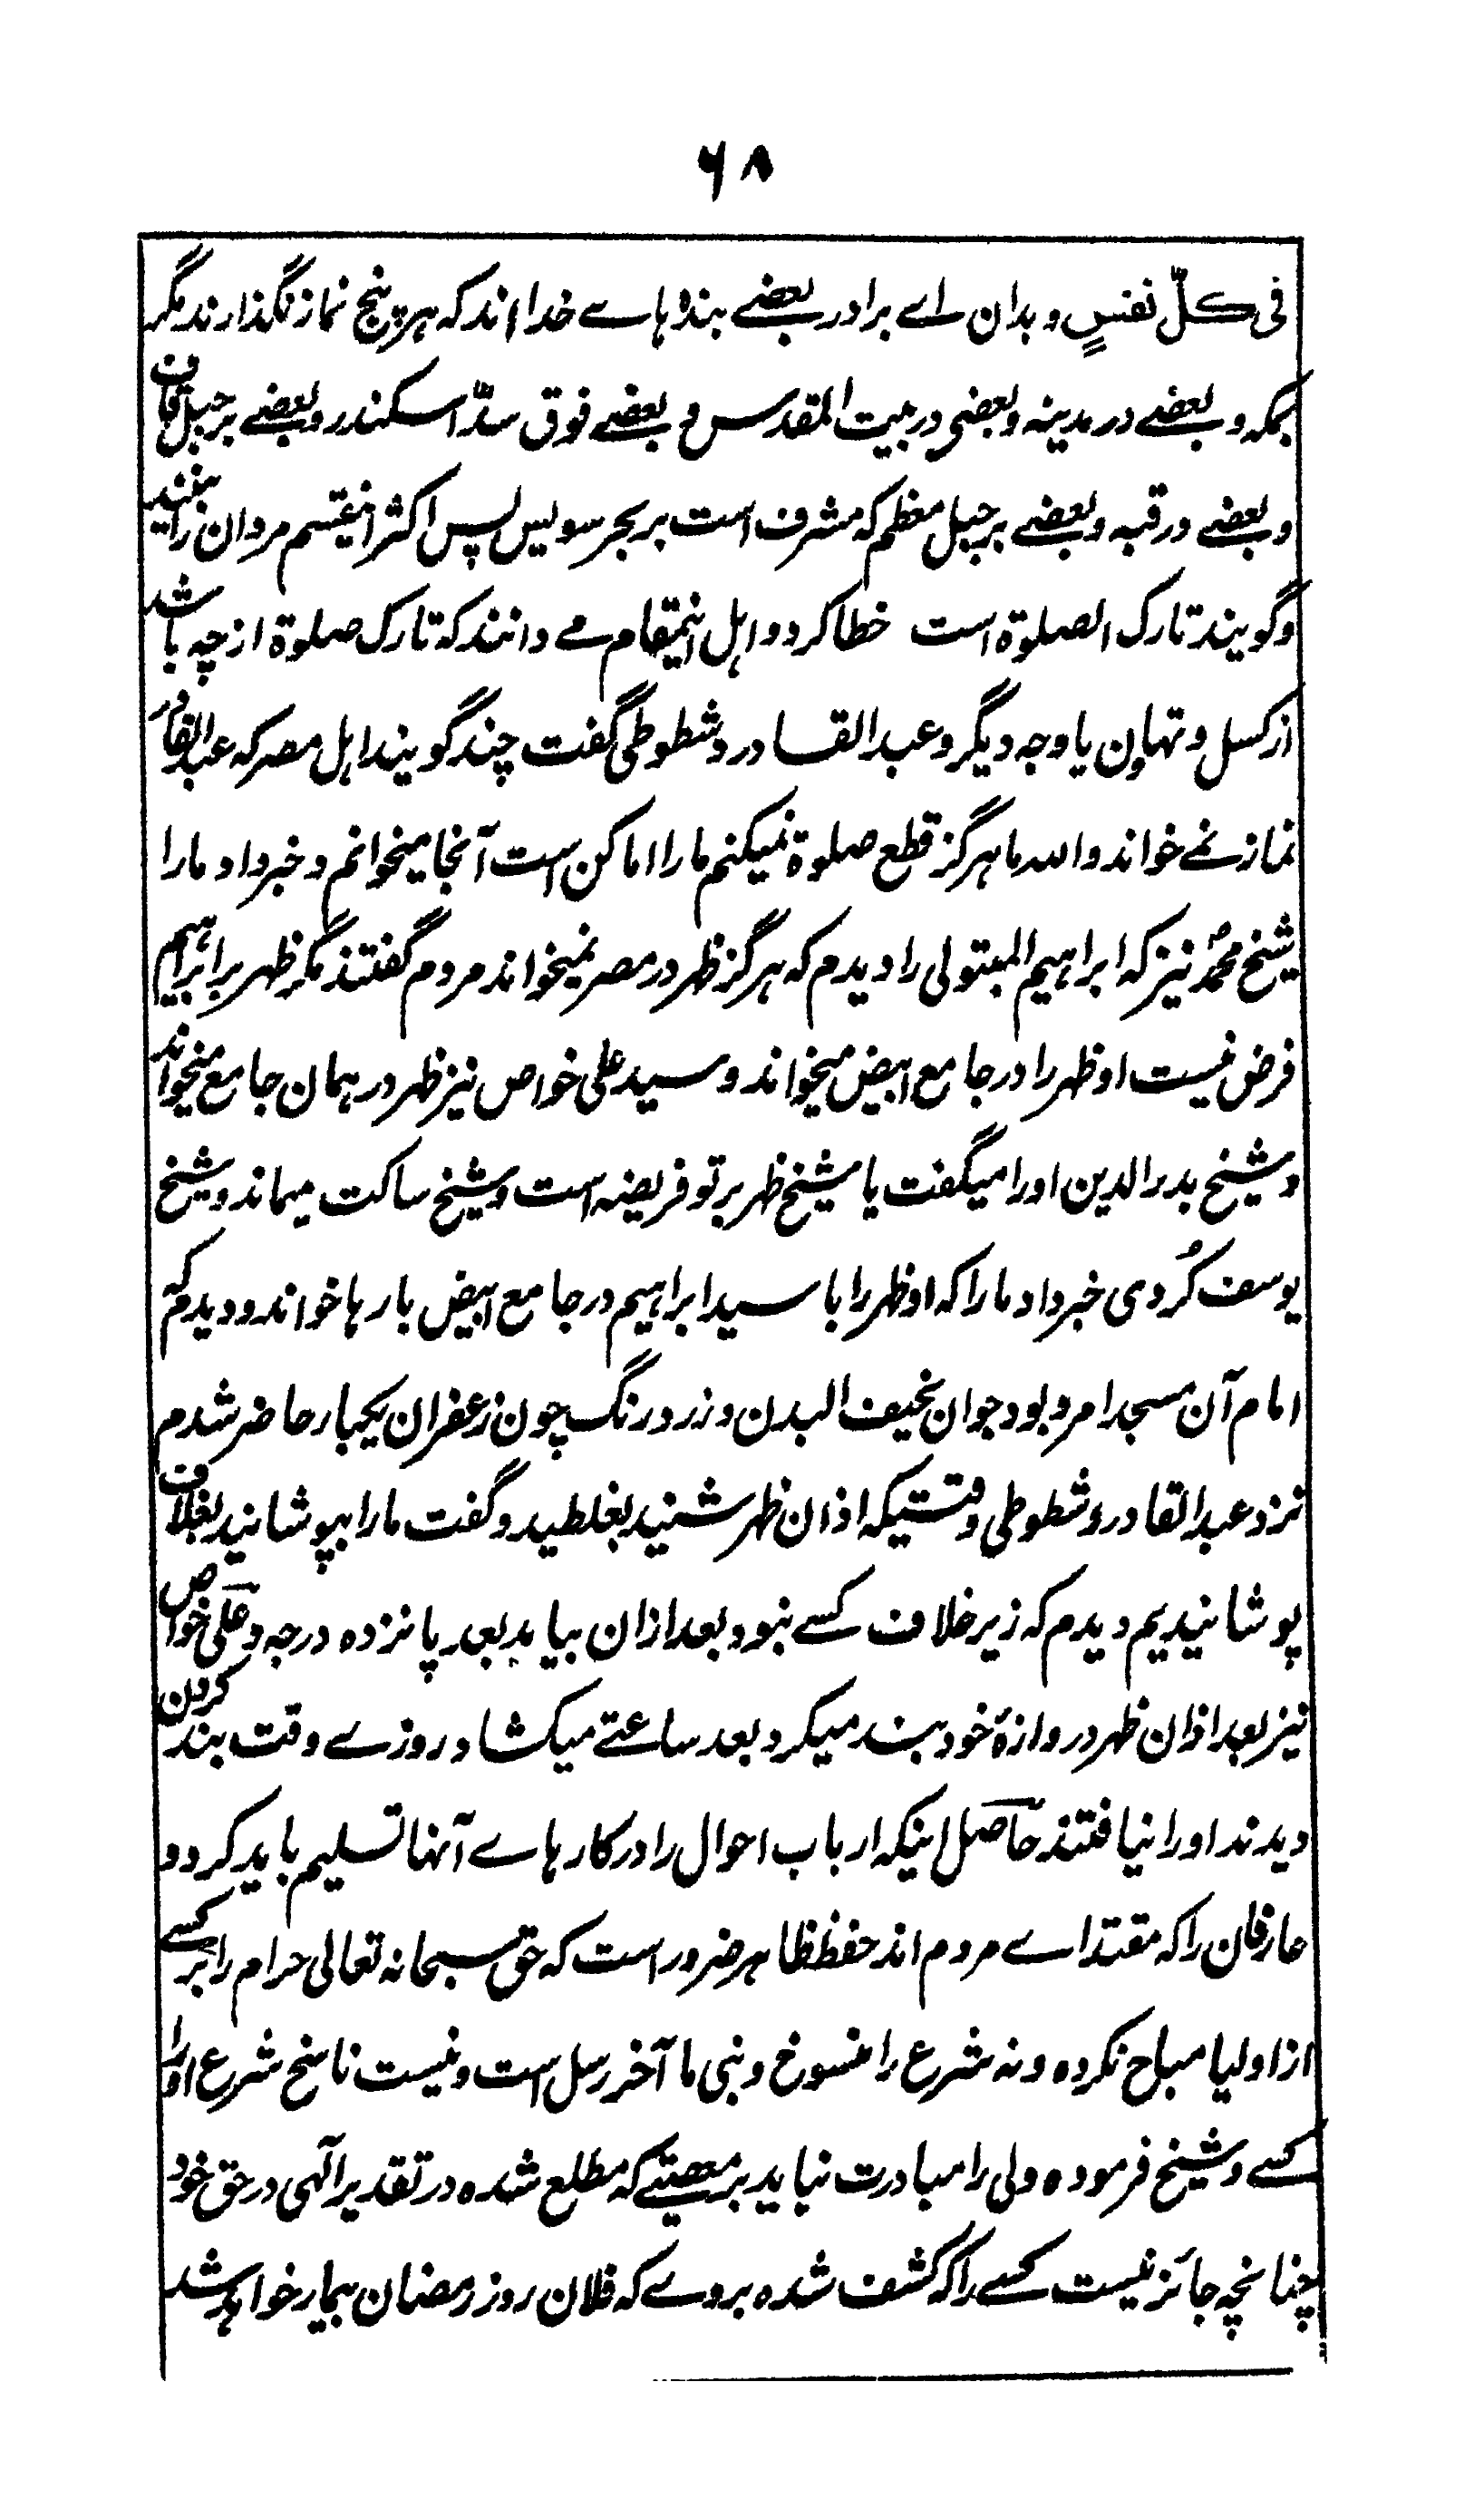 ۶۸
فی کلّ نفسٍ و بدان اے برادر بعضے بندہاے خدا اند کہ ہر پنج نماز نگذارند مگر
بمکہ و بعضے در مدینہ و بعضی در بیت المقدس و بعضے فوق سدّ اسکندر و بعضے بر جبل قاف
و بعضے در قبہ و بعضے بر جبل مقطم کہ مشرف است بر بحر سویس پس اکثر اینقسم مردان را بینند
و گویند تارک الصلوۃ است خطا کرد و اہل اینمقام مے دانند کہ تارک صلوۃ از چہ باشد
از کسل و تہاون یا وجہ دیگر و عبد القادر دشطوطی گفت چند گویند اہل مصر کہ عبد القادر
نماز نمے خواند واللہ ما ہرگز قطع صلوۃ نمیکنم ما را اماکن است آنجا میخوانم و خبر داد ما را
شیخ محمدؐ نیز کہ ابراہیم المبتولی را دیدم کہ ہرگز ظہر در مصر نمیخواند مردم گفتند مگر ظہر بر ابراہیم
فرض نیست او ظہر را در جامع ابیض میخواند و سید علی خواص نیز ظہر در ہمان جامع میخواند
و شیخ بدر الدین او را میگفت یا شیخ ظہر بر تو فریضہ است و شیخ ساکت میماند و شیخ
یوسف کُردی خبر داد ما را کہ او ظہر را با سید ابراہیم در جامع ابیض بارہا خواند و دیدم کہ
امام آن مسجد امرد بود جوان نحیف البدن و زرد رنگ چون زعفران یکبار حاضر شدم
نزد عبد القادر دشطوطی وقتیکہ اذان ظہر شنید بغلطید و گفت ما را بپوشانید بغلاف
پوشانیدیم دیدم کہ زیر غلاف کسے نبود بعد ازان بیاید بعد پانزدہ درجہ و علی خواص
نیز بعد اذان ظہر دروازۂ خود بند میکرد بعد ساعتے میکشاد روزے وقت بند کردن
دیدند او را نیافتند حاصل اینکہ ارباب احوال را در کارہاے آنہا تسلیم باید کرد و
عارفان را کہ مقتداے مردم اند حفظ ظاہر ضرور است کہ حق سبحانہ تعالی حرام را بر کسے
از اولیا مباح نکردہ و نہ شرع را منسوخ و نبی ما آخر رسل است و نیست ناسخ شرع او را
کسے و شیخ فرمودہ ولی را مبادرت نباید بر معصیتے کہ مطلع شدہ در تقدیر الٰہی در حق خود
چنانچہ جائز نیست کسے را کہ کشف شدہ بروے کہ فلان روز رمضان بیمار خواہد شد